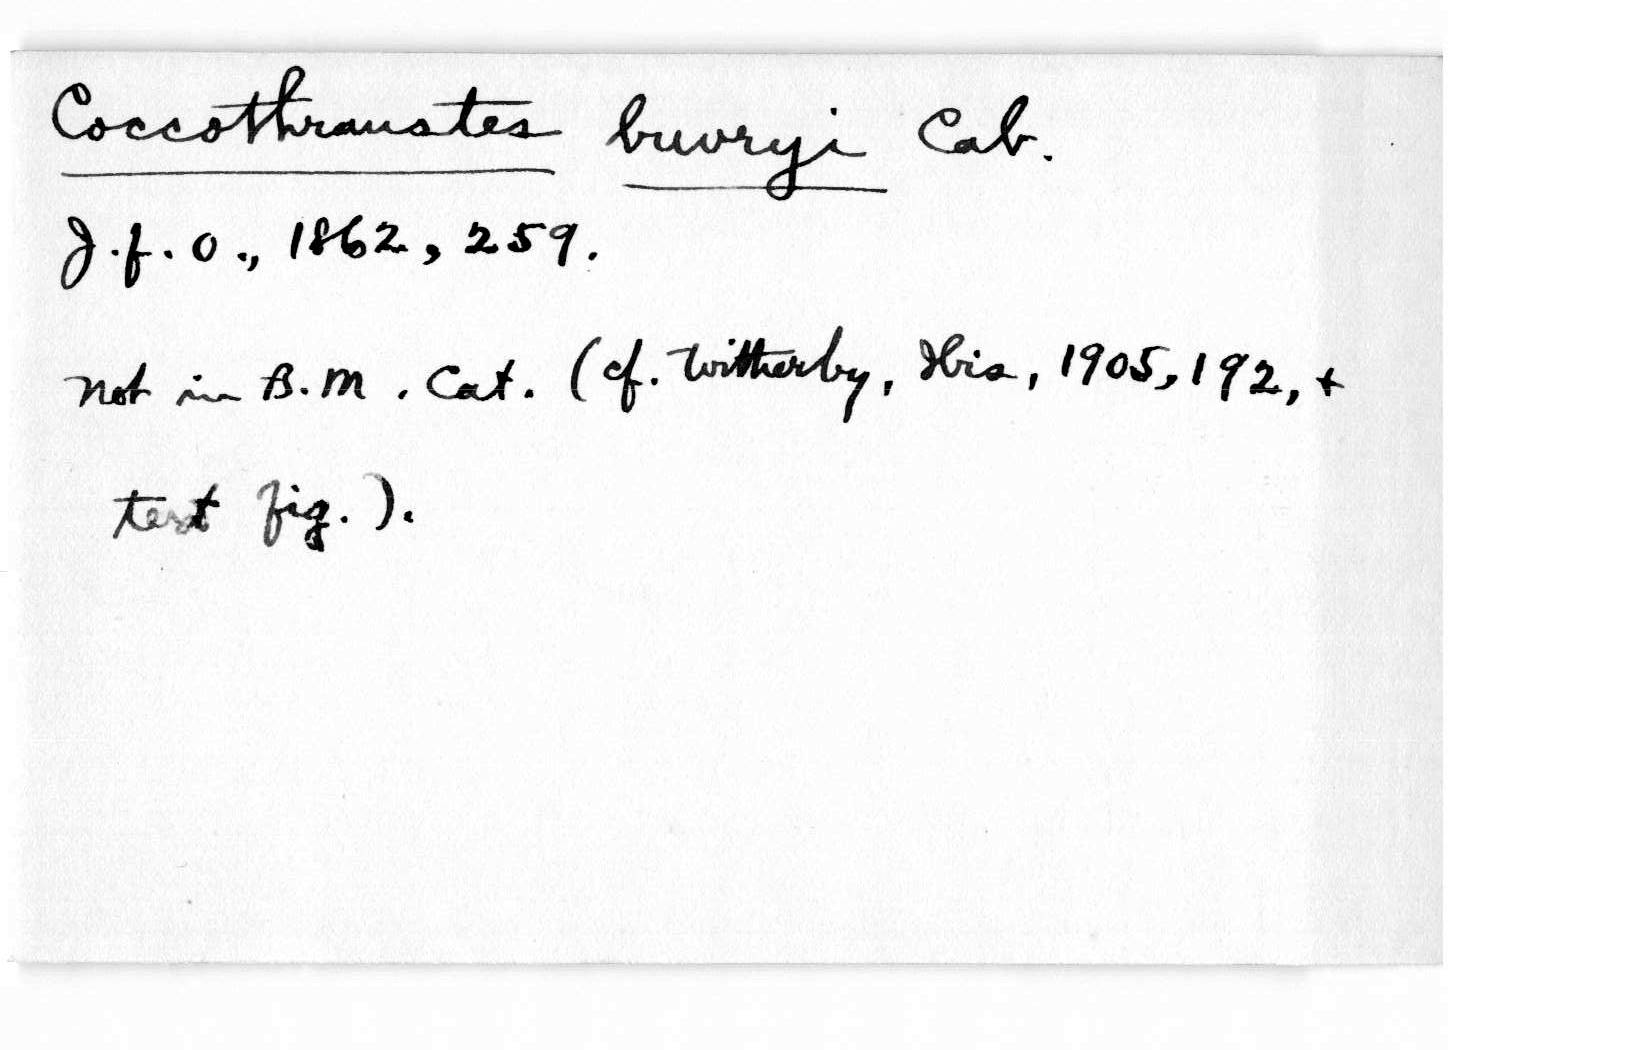 Coccothraustes buvryi Cab.
J.f.O., 1862, 259.
Not in B.M. Cat. (cf. Witherby, Ibis, 1905, 192, +
text fig.).